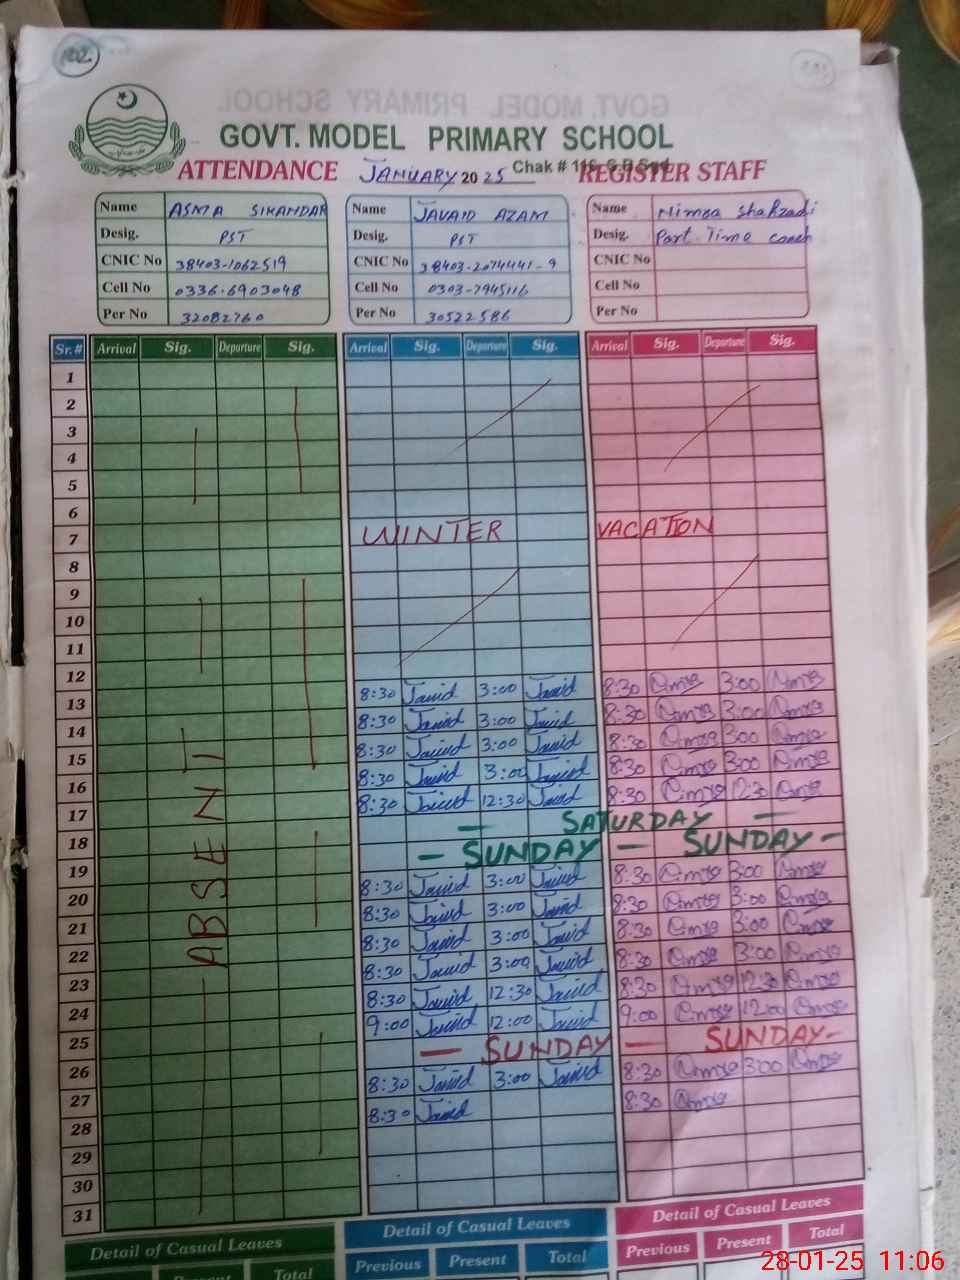 102
GOVT. MODEL PRIMARY SCHOOL
ATTENDANCE JANUARY 2025 REGISTER STAFF
Chak #
Name ASMA SIKANDAR Name JAVAID AZAM Name Nimra Shahzadi
Desig. PST Desig. PST Desig. Part Time coach
CNIC No 38403-1062519 CNIC No 38403-2074441-9 CNIC No
Cell No 0336-6903048 Cell No 0303-7945116 Cell No
Per No 32082760 Per No 30522586 Per No
Sr.# Arrival Sig. Departure Sig. Arrival Sig. Departure Sig. Arrival Sig. Departure Sig.
1
2
3
4
5
6
7 WINTER VACATION
8
9
10
11
12
13 8:30 Javid 3:00 Javid 8:30 3:00
14 8:30 Javid 3:00 Javid 8:30 3:00
15 8:30 Javid 3:00 Javid 8:30 3:00
16 8:30 Javid 3:00 Javid 8:30 3:00
17 8:30 Javid 12:30 Javid 8:30 12:30
18 — SATURDAY —
19 — SUNDAY — SUNDAY —
20 8:30 Javid 3:00 Javid 8:30 3:00
21 8:30 Javid 3:00 Javid 8:30 3:00
22 8:30 Javid 3:00 Javid 8:30 3:00
23 8:30 Javid 3:00 Javid 8:30 3:00
24 8:30 Javid 12:30 Javid 8:30 12:30
25 9:00 Javid 12:00 Javid 9:00 12:00
26 — SUNDAY — SUNDAY -
27 8:30 Javid 3:00 Javid 8:30 3:00
28 8:30 Javid 8:30
29
30
31
ABSENT
Detail of Casual Leaves Detail of Casual Leaves Detail of Casual Leaves
Present Total Previous Present Total Previous Present Total
28-01-25 11:06